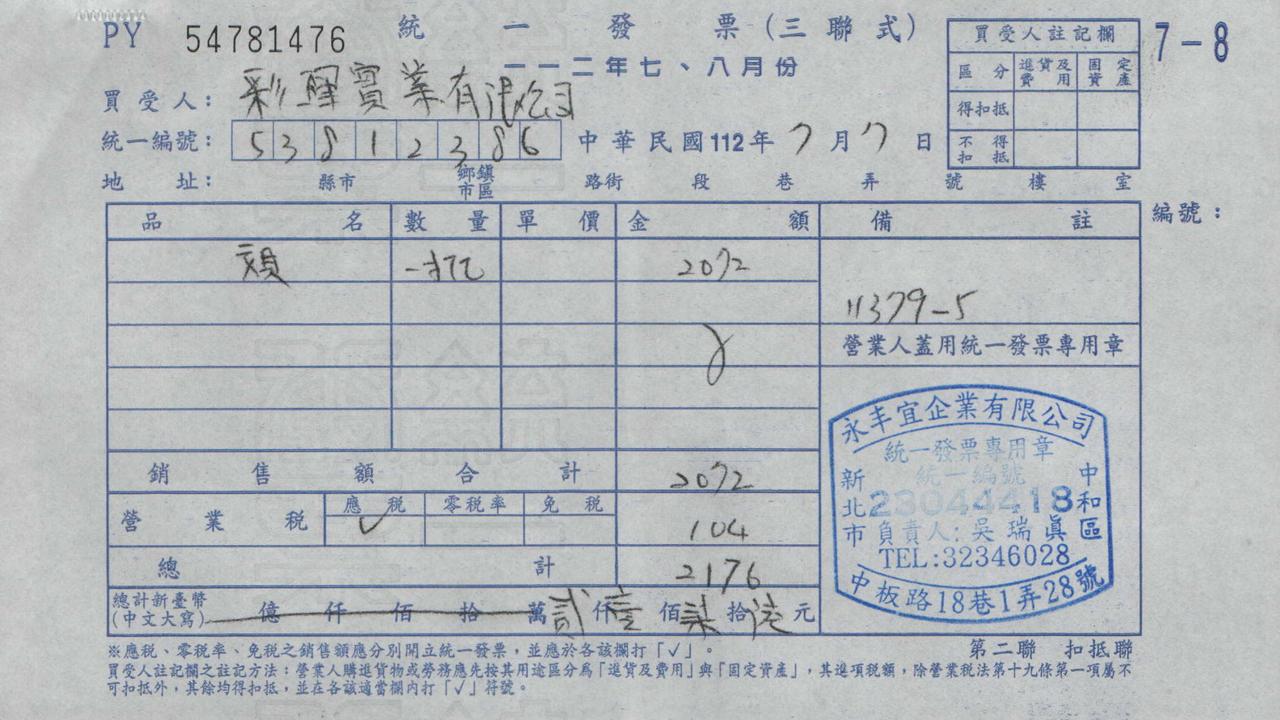 PY 54781476
統一發票(三聯式)
一一二年七、八月份
7-8
買受人註記欄
區分 進貨及費用 固定資產
得扣抵
不得扣抵
買受人: 彩 實業有限公司
統一編號: 53812386 中華民國112年7月7日
地址: 縣市 鄉鎮市區 路街 段 巷 弄 號 樓 室
編號:
品名 數量 單價 金額 備註
一批 2072
11379-5
營業人蓋用統一發票專用章
銷售額合計 2072
營業稅 應稅 零稅率 免稅
✓ 104
總計 2176
總計新臺幣(中文大寫) 億 仟 佰 拾 萬 貳 仟 壹 佰 柒 拾 陸 元
永丰宜企業有限公司
統一發票專用章
統一編號
23044418
負責人:吳瑞真
TEL:32346028
新北市
中和區
中板路18巷1弄28號
※應稅、零稅率、免稅之銷售額應分別開立統一發票,並應於各該欄打「✓」。
第二聯 扣抵聯
買受人註記欄之註記方法:營業人購進貨物或勞務應先按其用途區分為「進貨及費用」與「固定資產」,其進項稅額,除營業稅法第十九條第一項屬不
可扣抵外,其餘均得扣抵,並在各該適當欄內打「✓」符號。